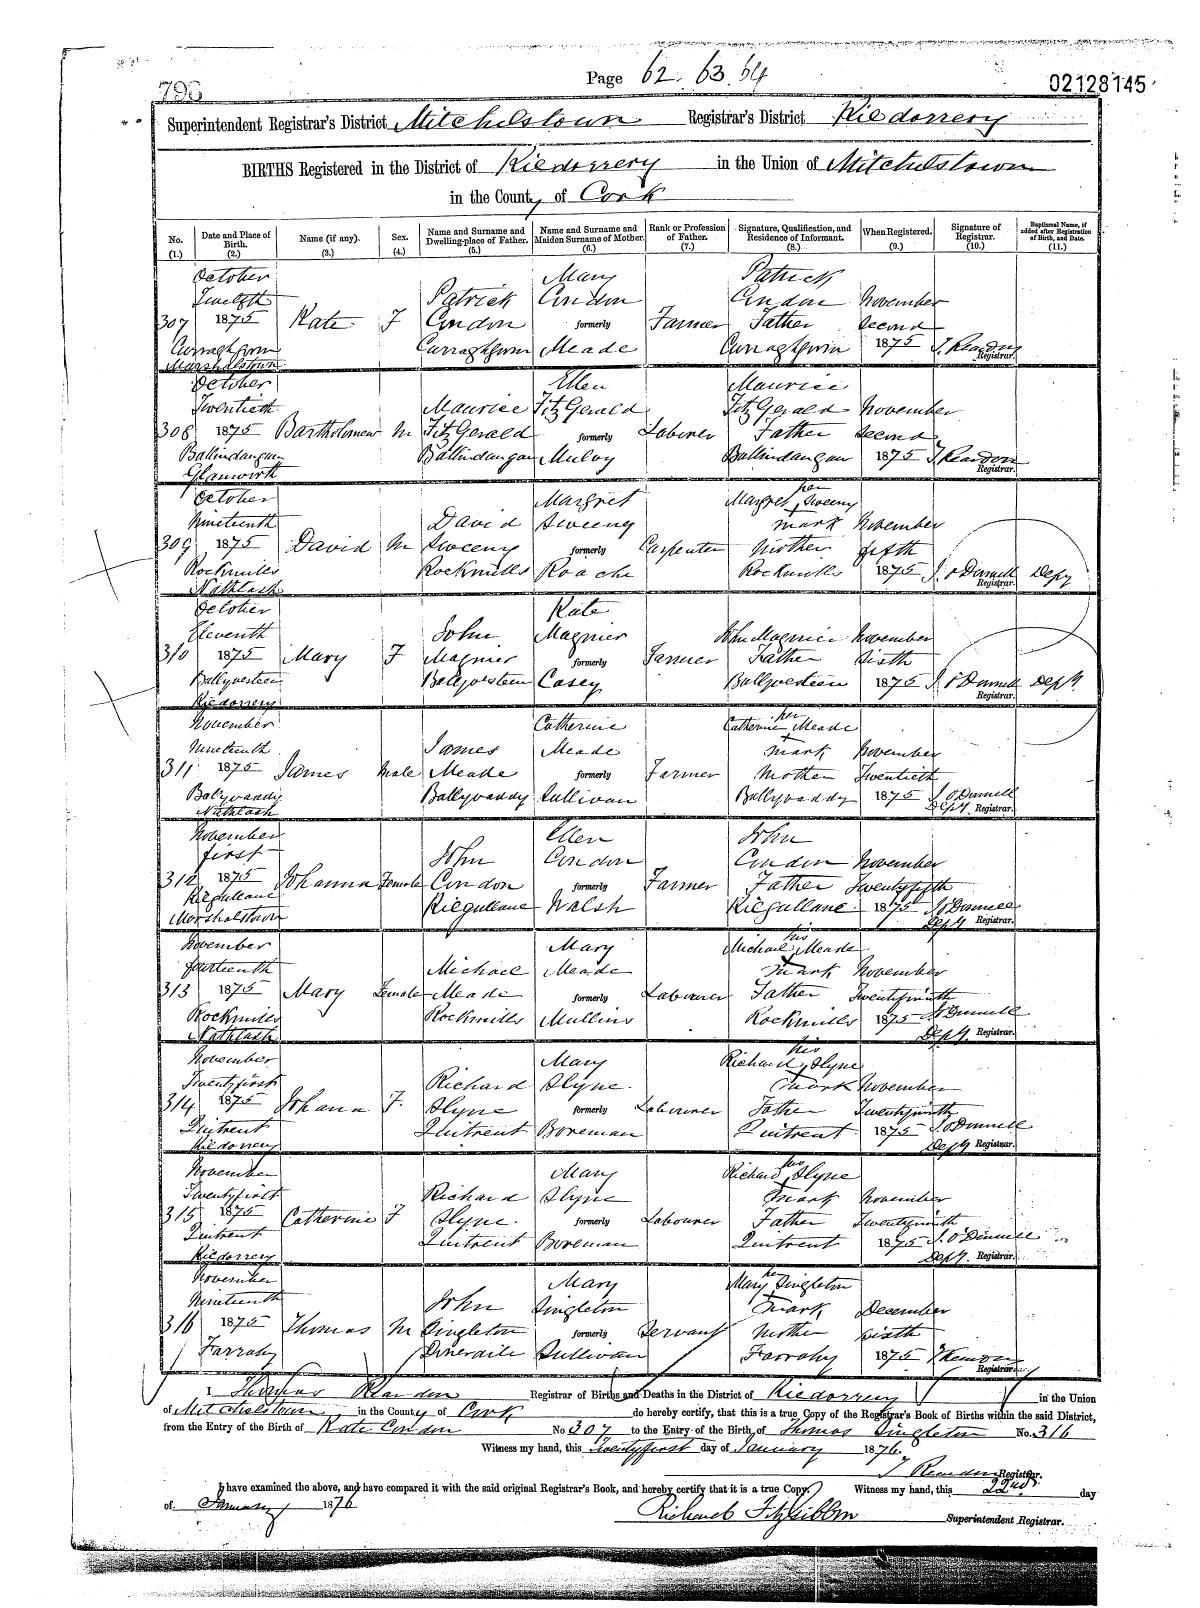 Page 62. 63. 64
796
02128145
Superintendent Registrar's District Mitchelstown Registrar's District Kildorrery
BIRTHS Registered in the District of Kildorrery in the Union of Mitchelstown
in the County of Cork
No. (1.) Date and Place of Birth. (2.) Name (if any). (3.) Sex. (4.) Name and Surname and Dwelling-place of Father. (5.) Name and Surname and Maiden Surname of Mother. (6.) Rank or Profession of Father. (7.) Signature, Qualification, and Residence of Informant. (8.) When Registered. (9.) Signature of Registrar. (10.) Baptismal Name, if added after Registration of Birth, and Date. (11.)
October Mary Patrick
Twelfth Patrick Condon Condon November
307 1875 Kate F Condon formerly Farmer Father Second
Curraghgorm Curraghgorm Meade Curraghgorm 1875 T. Reardon Registrar.
Marshalstown
October Ellen Maurice
Twentieth Maurice FitzGerald FitzGerald November
308 1875 Bartholomew M FitzGerald formerly Laborer Father Second
Ballindangan Ballindangan Mulvy Ballindangan 1875 T. Reardon Registrar.
Glanworth
October Margret Margret her Sweeny
Nineteenth David Sweeny mark November
309 1875 David M Sweeny formerly Carpenter Mother fifth
Rockmills Rockmills Roache Rockmills 1875 J. O'Donnell Registrar. Depy
Nathlash
October Kate
Eleventh John Magnier John Magnier November
310 1875 Mary F Magnier formerly Farmer Father Sixth
Ballyvisteen Ballyvisteen Casey Ballyvisteen 1875 J. O'Donnell Registrar. Depy.
Kildorrery
November Catherine Catherine her Meade
Nineteenth James Meade mark November
311 1875 James Male Meade formerly Farmer Mother Twentieth
Ballyvaddy Ballyvaddy Sullivan Ballyvaddy 1875 J O'Donnell
Nathlash Depy. Registrar.
November Ellen John
first John Condon Condon November
312 1875 Johanna Female Condon formerly Farmer Father Twentyfifth
Kilgullane Kilgullane Walsh Kilgullane 1875 J O'Donnell
Marshalstown Depy Registrar.
November Mary Michael his Meade
fourteenth Michael Meade mark November
313 1875 Mary Female Meade formerly Labourer Father Twentyninth
Rockmills Rockmills Mullins Rockmills 1875 J O'Donnell
Nathlash Depy. Registrar.
November Mary Richard his Slyne
Twentyfirst Richard Slyne. mark November
314 1875 Johana F. Slyne formerly Labourer Father Twentyninth
Quitrent Quitrent Boreman Quitrent 1875 J O'Donnell
Kildorrery Depy Registrar.
November Mary Richard his Slyne
Twentyfirst Richard Slyne mark November
315 1875 Catherine F Slyne. formerly Labourer Father Twentyninth
Quitrent Quitrent Boreman Quitrent 1875 J. O'Donnell
Kildorrery Depy. Registrar.
November Mary Mary her Singleton
Nineteenth John Singleton mark December
316 1875 Thomas M Singleton formerly Servant Mother Sixth
Farrahy Doneraile Sullivan Farrahy 1875 T Reardon Registrar.
I Thomas Reardon Registrar of Births and Deaths in the District of Kildorrery in the Union
of Mitchelstown in the County of Cork do hereby certify, that this is a true Copy of the Registrar's Book of Births within the said District,
from the Entry of the Birth of Kate Condon No 307 to the Entry of the Birth of Thomas Singleton No. 316
Witness my hand, this Twentyfirst day of January 1876.
T Reardon Registrar.
I have examined the above, and have compared it with the said original Registrar's Book, and hereby certify that it is a true Copy. Witness my hand, this 22nd day
of January 1876
Richard FitzGibbon Superintendent Registrar.